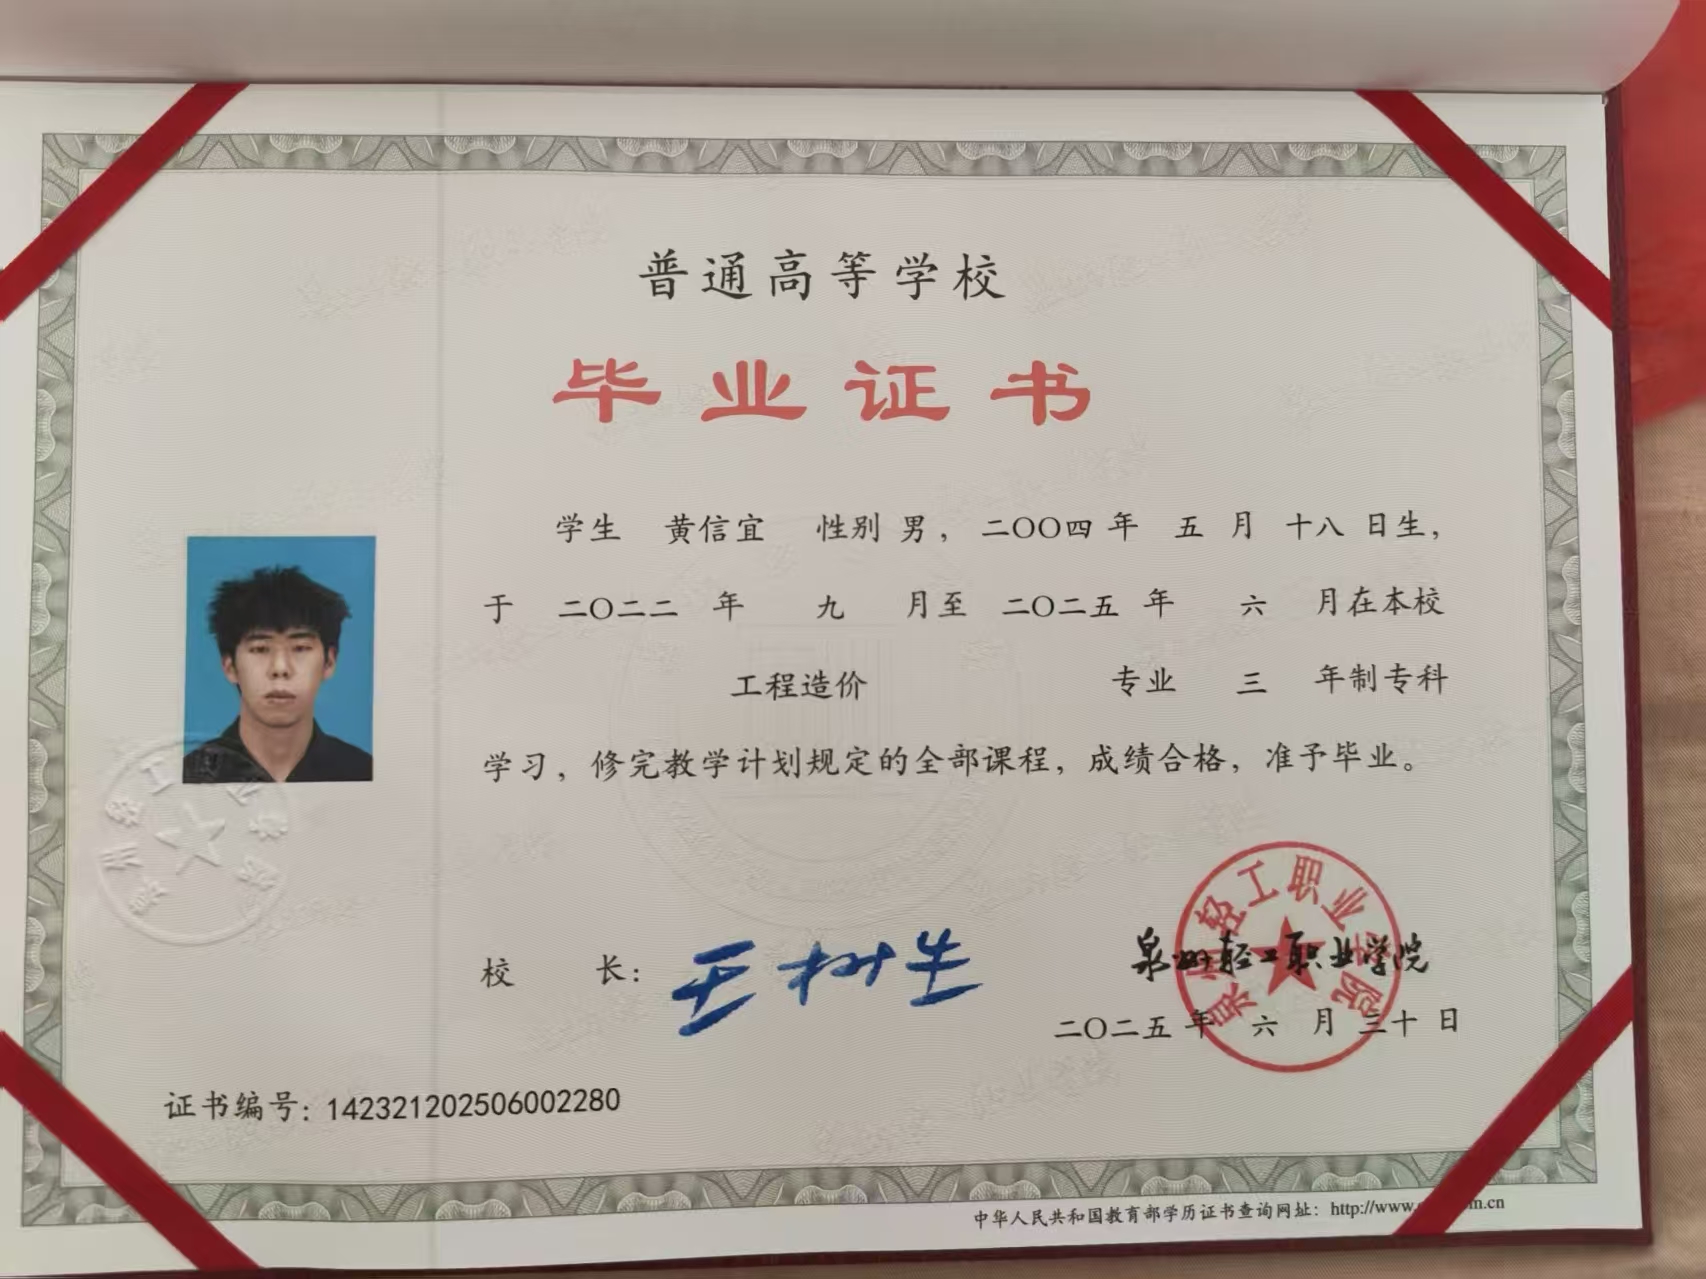 普通高等学校
毕业证书
学生 黄信宜 性别 男，二〇〇四 年 五 月 十八 日生，
于 二〇二二 年 九 月至 二〇二五 年 六 月在本校
工程造价 专业 三 年制专科
学习，修完教学计划规定的全部课程，成绩合格，准予毕业。
校 长：王树生
泉州轻工职业学院
泉州轻工职业学院
二〇二五 年 六 月 三十 日
证书编号：142321202506002280
中华人民共和国教育部学历证书查询网址：http://www.